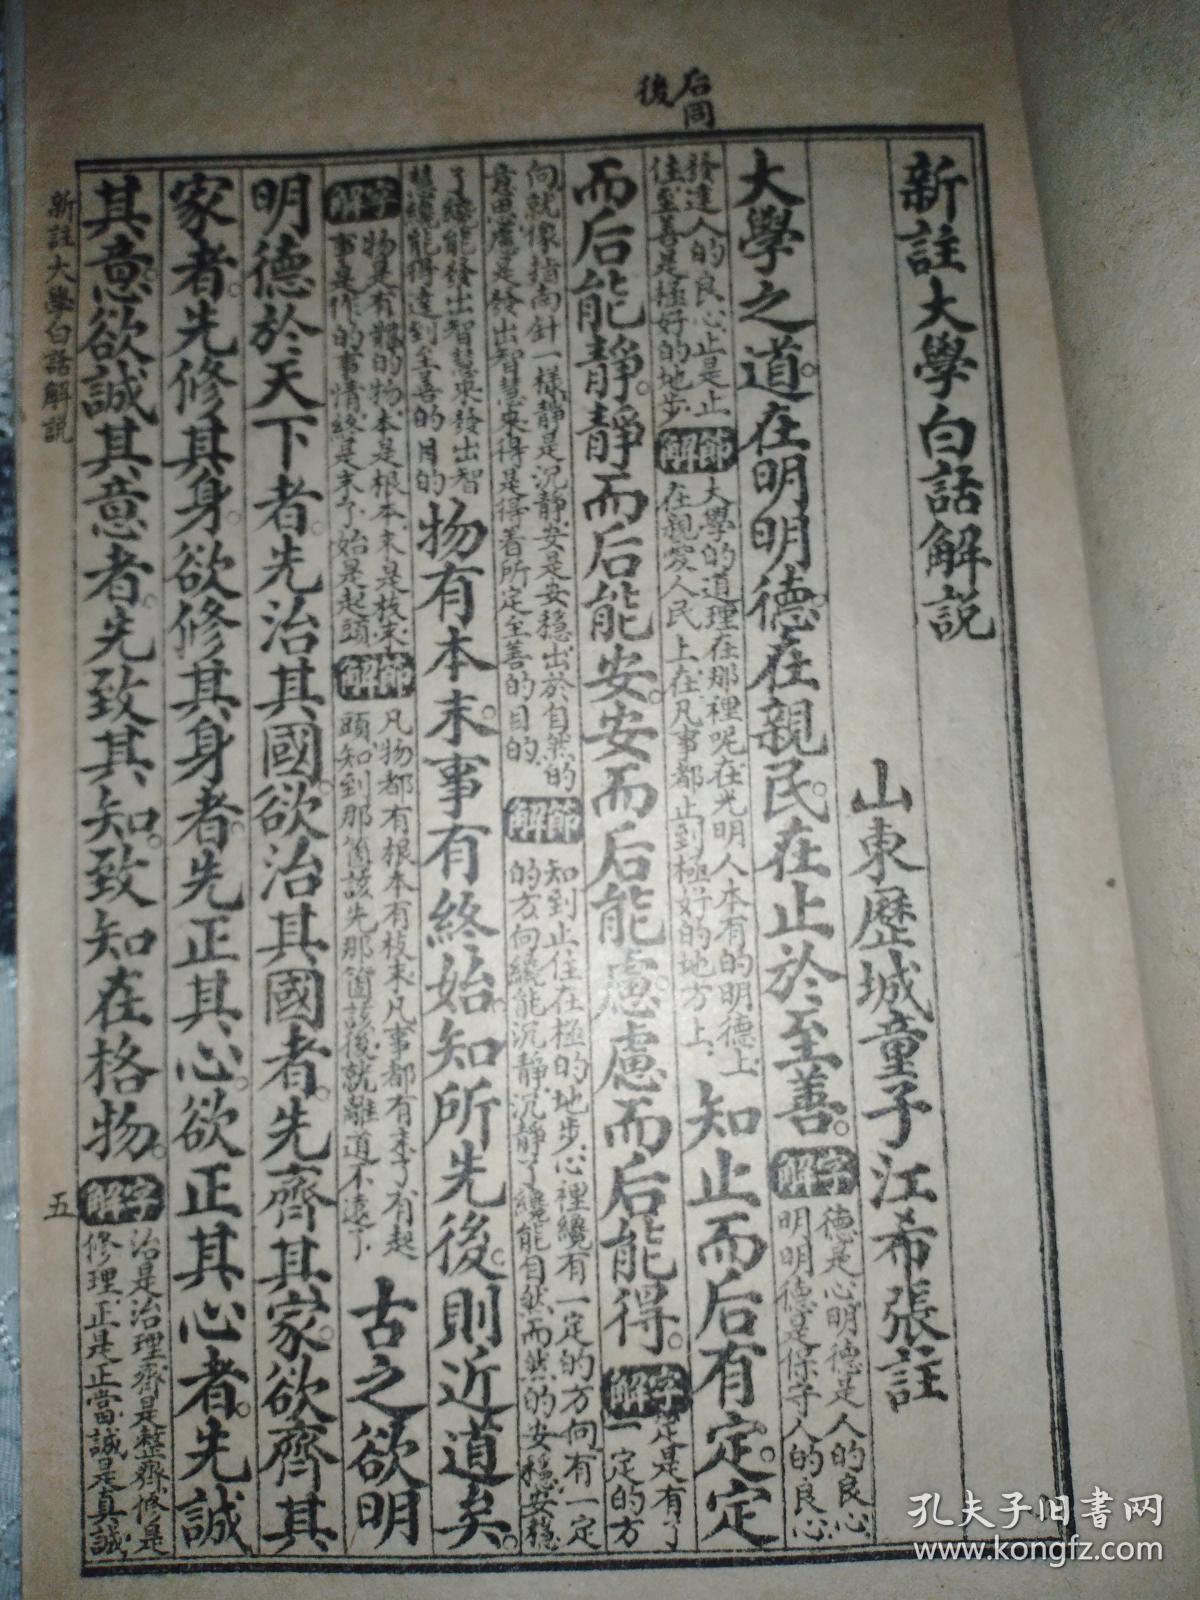 后同
後
新註大學白話解説
山東歷城童子江希張註
大學之道。在明明德。在親民。在止於至善。
字解
德是心明德是人的良心
明明德是保守人的良心
發達人的良心止是止
住至善是極好的地步
節解
大學的道理在那裡呢在光明人本有的明德上
在親愛人民上在凡事都止到極好的地方上
知止而后有定。定
而后能靜。靜而后能安。安而后能慮。慮而后能得。
字解
定是有了
一定的方
向就像指南針一樣靜是沉靜安是安穩出於自然的
意思慮是發出智慧來得是得着所定至善的目的
節解
知到止住在極的地步心裡纔有一定的方向有一定
的方向纔能沉靜沉靜了纔能自然而然的安穩安穩
了纔能發出智慧來發出智
慧纔能得達到至善的目的
物有本末。事有終始。知所先後。則近道矣。
字解
物是有體的物本是根本末是枝末
事是作的事情終是末了始是起頭
節解
凡物都有根本有枝末凡事都有末了有起
頭知到那箇該先那箇該後就離道不遠了
古之欲明
明德於天下者。先治其國。欲治其國者。先齊其家。欲齊其
家者。先修其身。欲修其身者。先正其心。欲正其心者。先誠
其意。欲誠其意者。先致其知。致知在格物。
字解
治是治理齊是整齊修是
修理正是正當誠是真誠
新註大學白話解説
五
孔夫子旧书网
www.kongfz.com